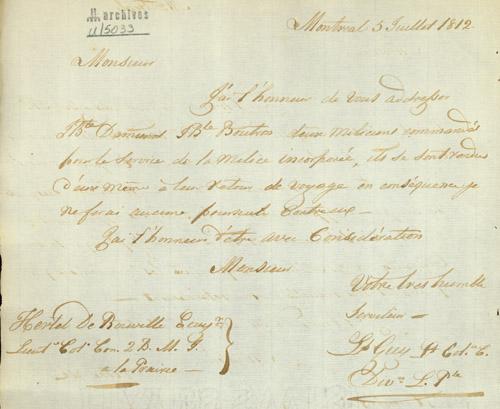 M. archives
11/5033
Montreal 5 Juillet 1812
Monsieur
J'ai l'honneur de vous addresser
J Bte J Bte Boutron deux miliciens commandés
pour le service de la Melice incorporée, ils se sont rendus
d'eux même à leur retour de voyage en conséquence je
ne ferai aucune poursuite contr'eux —
J'ai l'honneur d'être avec Considération
Monsieur
Votre très humble
Serviteur —
Ls Guy Lt Col. C.
Divn L. Pte
Hertel De Rouville Ecuyr
Lieut. Col. Com. 2 B. M. I.
à la Prairie —